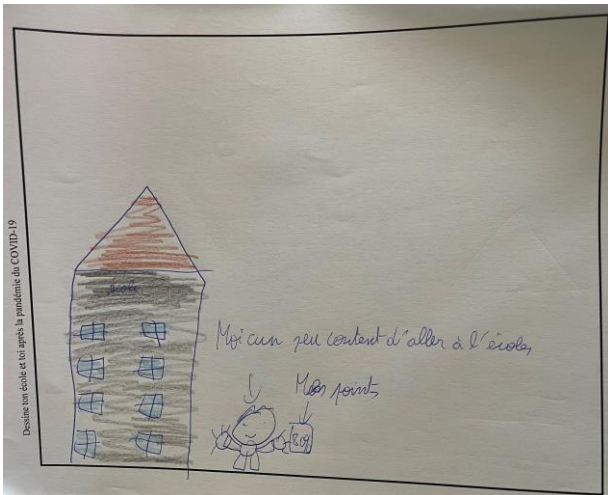 Dessine ton école et toi après la pandémie du COVID-19
école
Moi un peu content d'aller à l'écoles
Mes points